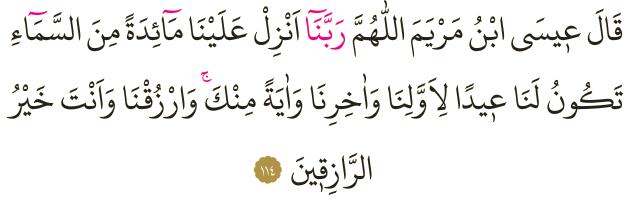 قَالَ ع۪يسَى ابْنُ مَرْيَمَ اللّٰهُمَّ رَبَّنَٓا اَنْزِلْ عَلَيْنَا مَٓائِدَةً مِنَ السَّمَٓاءِ
تَكُونُ لَنَا ع۪يدًا لِاَوَّلِنَا وَاٰخِرِنَا وَاٰيَةً مِنْكَۚ وَارْزُقْنَا وَاَنْتَ خَيْرُ
الرَّازِق۪ينَ ﴿١١٤﴾